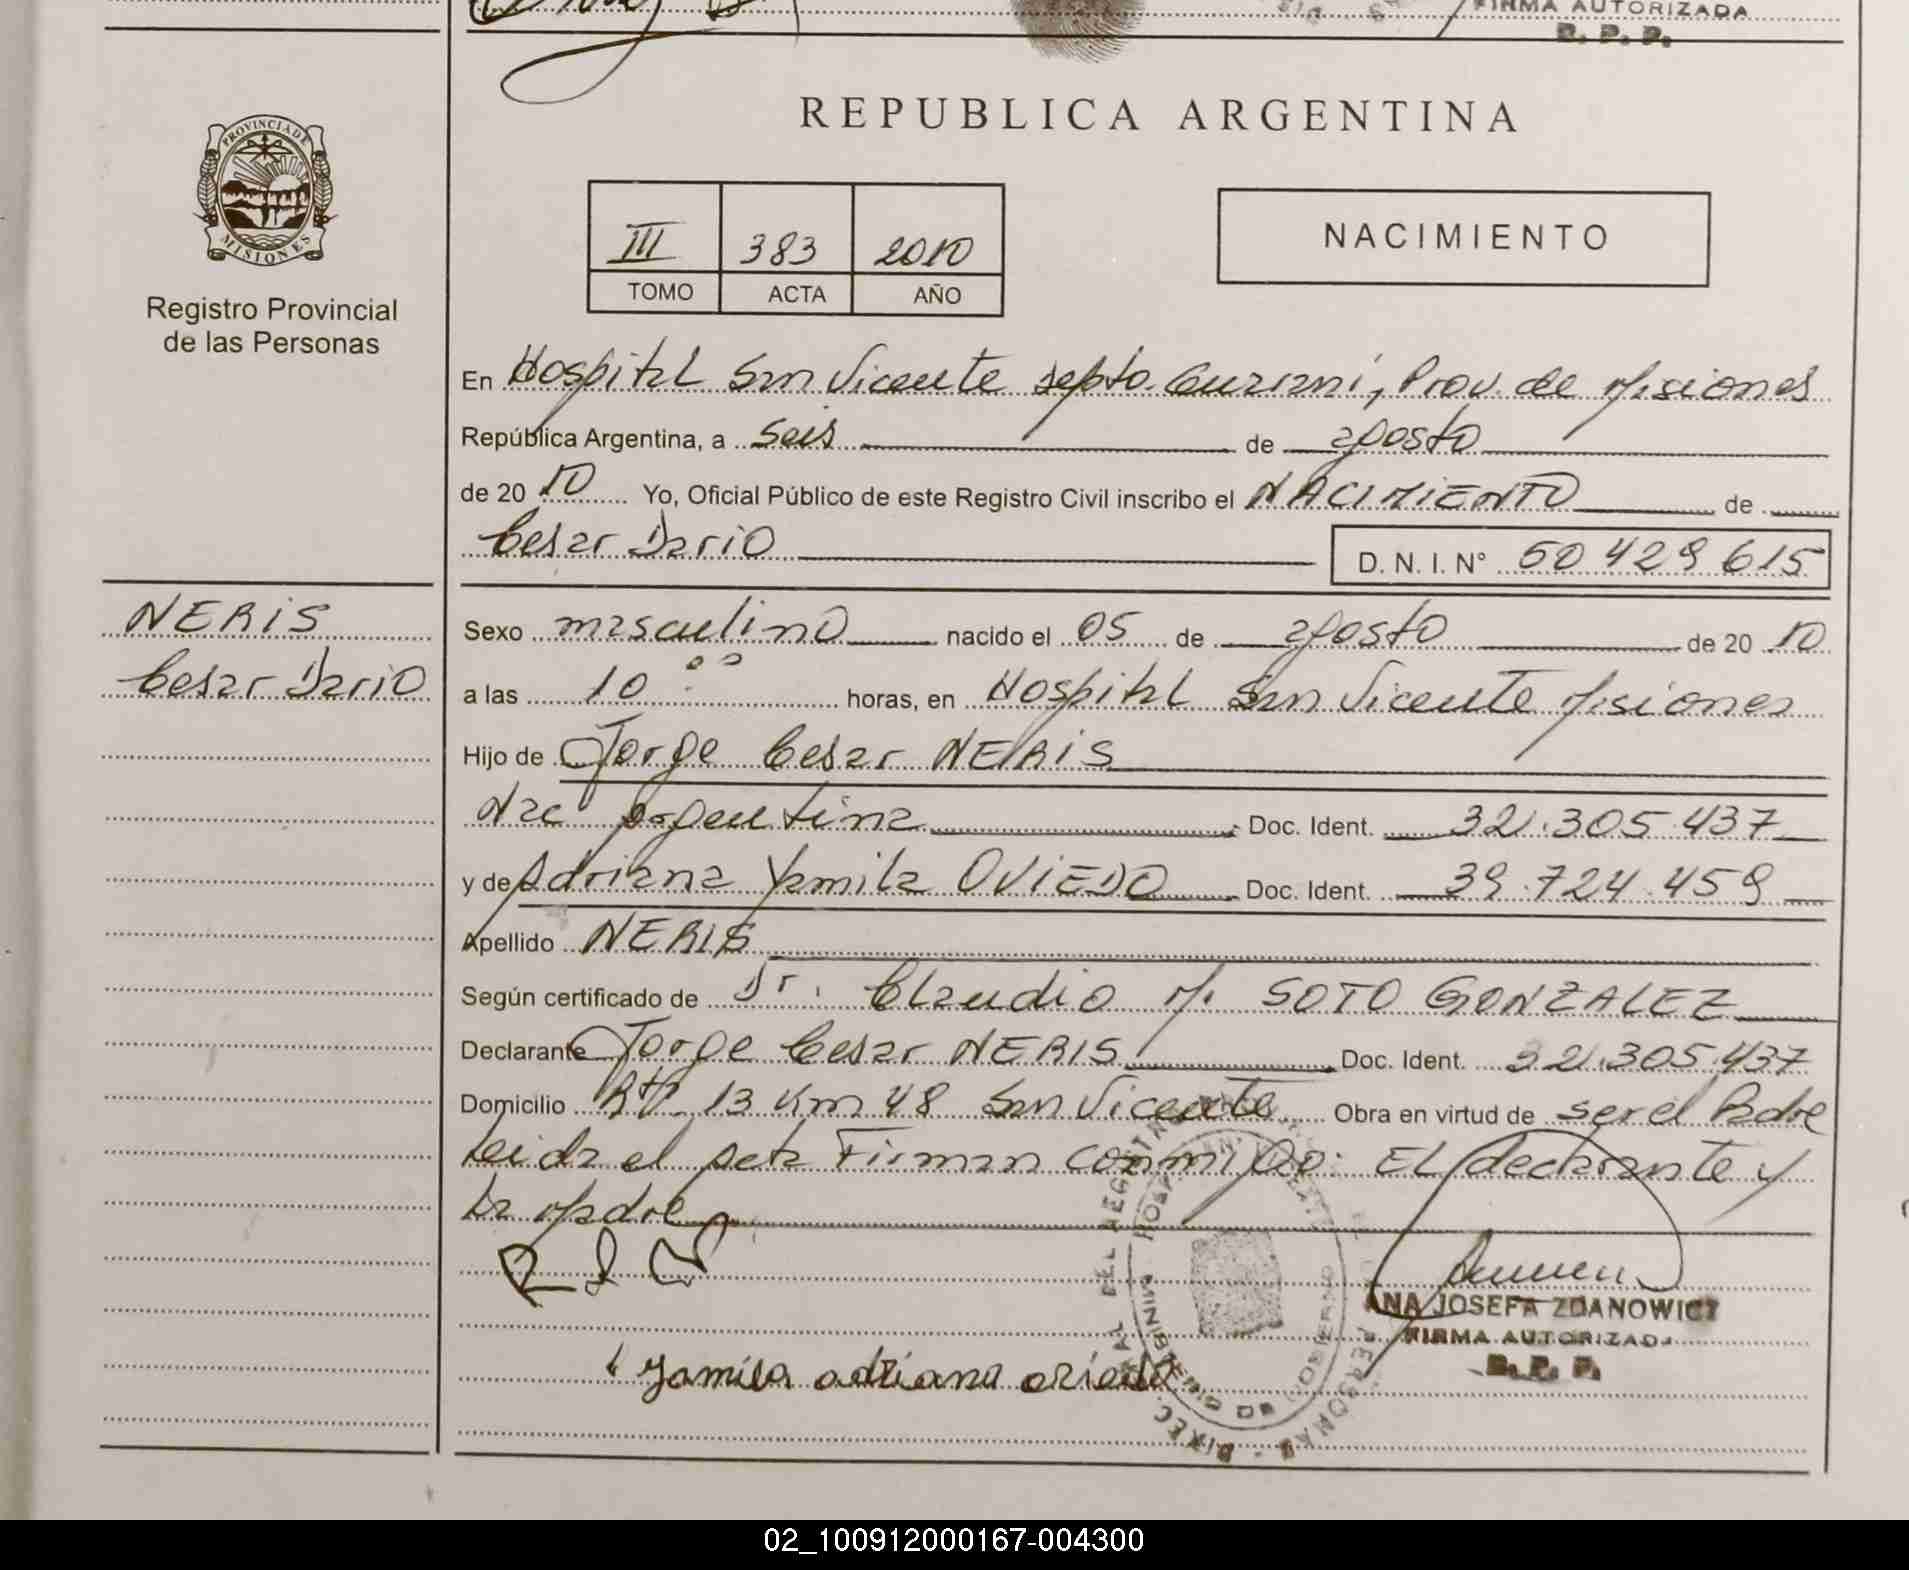 FIRMA AUTORIZADA
R. P. P.
PROVINCIA DE
MISIONES
Registro Provincial
de las Personas
REPUBLICA ARGENTINA
III 383 2010
TOMO ACTA AÑO
NACIMIENTO
En Hospital San Vicente Depto. Guarani, Prov. de Misiones
República Argentina, a Seis de agosto
de 20 10 Yo, Oficial Público de este Registro Civil inscribo el NACIMIENTO de
Cesar Dario D. N. I. N° 50 429 615
NERIS
Cesar Dario
Sexo masculino nacido el 05 de agosto de 20 10
a las 10:00 horas, en Hospital San Vicente Misiones
Hijo de Jorge Cesar NERIS
Nac Argentina Doc. Ident. 32.305.437
y de Adriana Yamila OVIEDO Doc. Ident. 39.724.459
Apellido NERIS
Según certificado de Dr. Claudio M. SOTO GONZALEZ
Declarante Jorge Cesar NERIS Doc. Ident. 32.305.437
Domicilio Rta 13 Km 48 San Vicente Obra en virtud de ser el Padre
Leida el Acta Firman conmigo: EL declarante y
La Madre
ANA JOSEFA ZDANOWICZ
FIRMA AUTORIZADA
R. P. P.
Yamila adriana oviedo
02_100912000167-004300